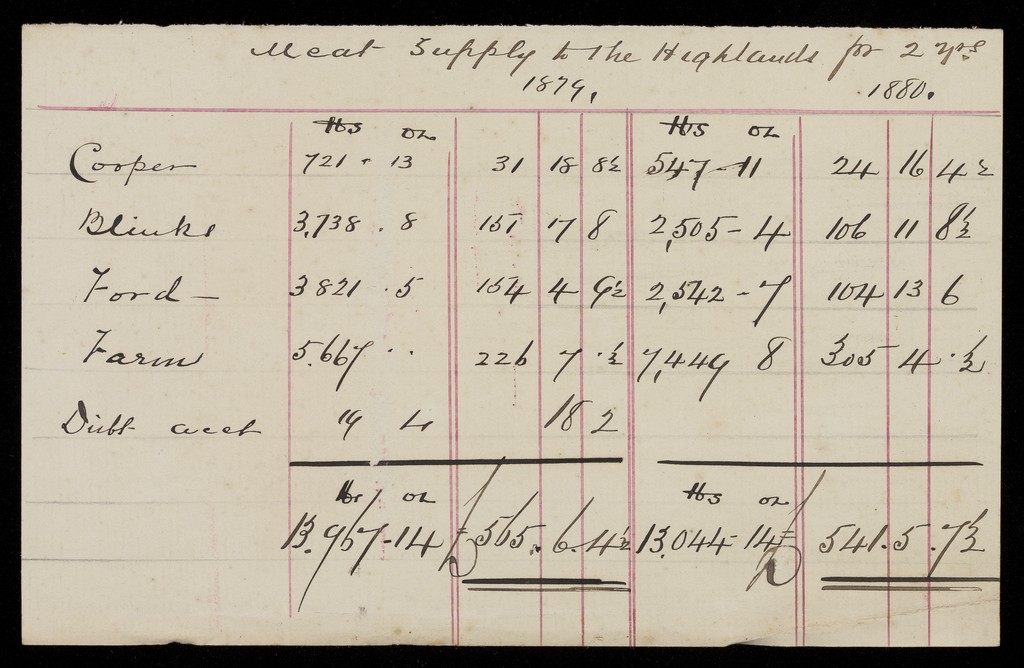 Meat Supply to the Highlands for 2 yrs
1879. 1880.
lbs oz lbs oz
Cooper 721 - 13 31 18 8½ 547 - 11 24 16 4½
Blinks 3,738 . 8 151 17 8 2,505 - 4 106 11 8½
Ford - 3821 . 5 154 4 9½ 2,542 - 7 104 13 6
Farm 5.667 . . 226 7 . ½ 7,449 8 305 4 . ½
acct 19 4 18 2
lbs oz lbs oz
13.967 - 14 £ 565. 6. 4½ 13,044 - 14 £ 541. 5. 7½